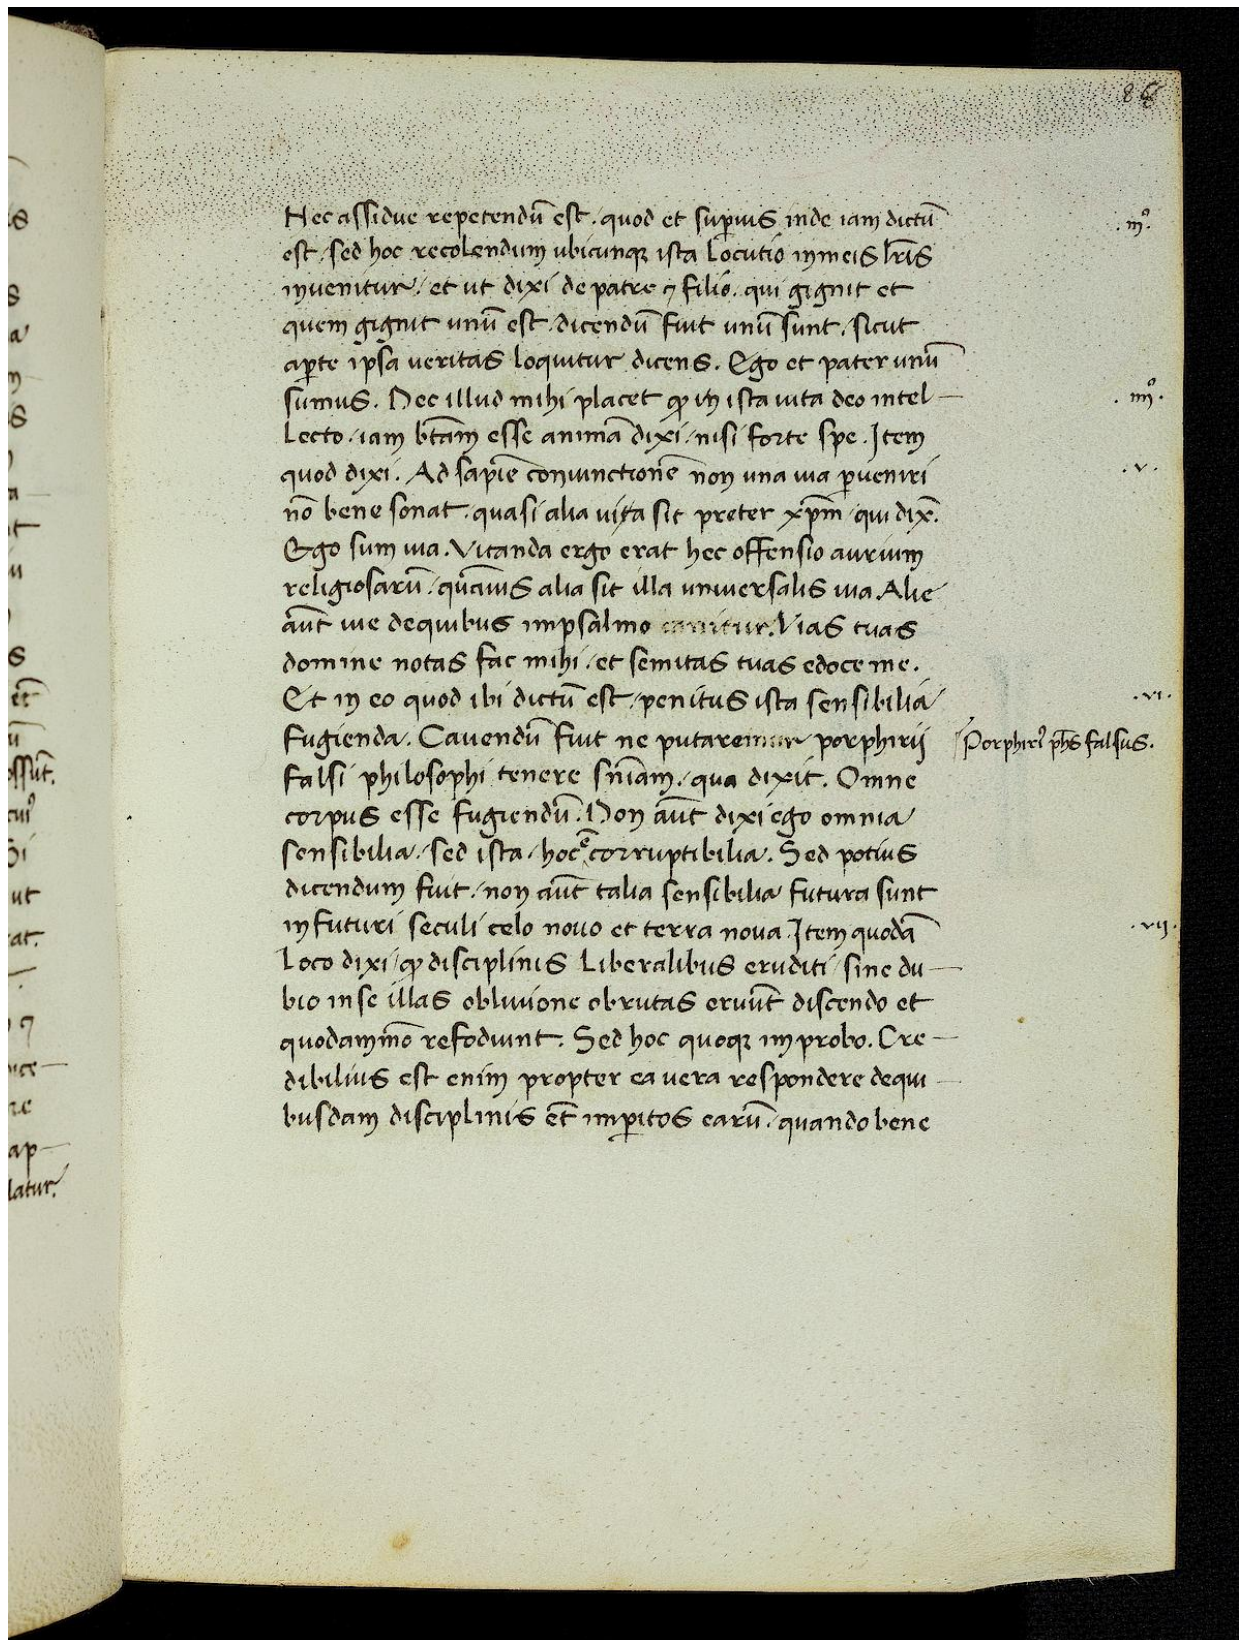 86
Nec assidue repetendū est. quod et sup̄ius inde iam dictū
.iiiº.
est / sed hoc recolendum ubicunqꝫ ista Locutio in meis lr̄is
invenitur / et ut dixi de patre ⁊ filio. qui gignit et
quem gignit unū est. dicendū fuit unū sunt / sicut
aꝑte ipsa veritas loquitur dicens. Ego et pater unū
sumus. Nec illud mihi placet ꝙ in ista uita deo intel-
.iiiiº.
Lecto / iam b̄tam esse animā dixi / nisi forte spe. Item
quod dixi. Ad sapīe coniunctionē non una uia ꝑueniri
.v.
nō bene sonat. quasi alia uita sit preter xp̄m / qui dix̄.
Ego sum uia. Vitanda ergo erat hec offensio aurium
religiosarū / quāuis alia sit illa universalis uia Alie
aūt uie de quibus in psalmo canitur. Vias tuas
domine notas fac mihi / et semitas tuas edoce me.
Et in eo quod ibi dictū est / penitus ista sensibilia
.vi.
fugienda. Cavendū fuit ne putaremur porphirij
Porphiri⁹ ph̄s falsus.
falsi philosophi tenere sn̄iam / qua dixit. Omne
corpus esse fugiendū. Non aūt dixi ego omnia
sensibilia / sed ista / hoc ē corruptibilia. Sed potius
dicendum fuit / non aūt talia sensibilia futura sunt
in futuri seculi celo nouo et terra noua. Item quodā
.vij.
Loco dixi / ꝙ disciplinis Liberalibus eruditi / sine du-
bio in se illas oblivione obrutas eruūt discendo et
quodammō refodiunt. Sed hoc quoqꝫ improbo. Cre-
dibilius est enim propter ea vera respondere de qui-
busdam disciplinis et̄ imꝑitos earū / quando bene